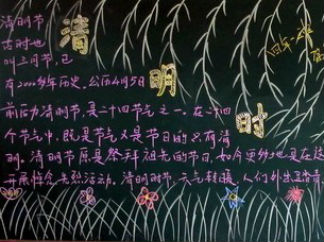 清明节
古时也
叫三月节,已
有2000多年历史。公历4月5日
前后为清明节,是二十四节气之一。在二十四
个节气中,既是节气又是节日的只有清
明。清明节原是祭拜祖先的节日,如今更多地是在这
开展悼念先烈活动。清明时节,天气转暖,人们外出踏青
清
明
时